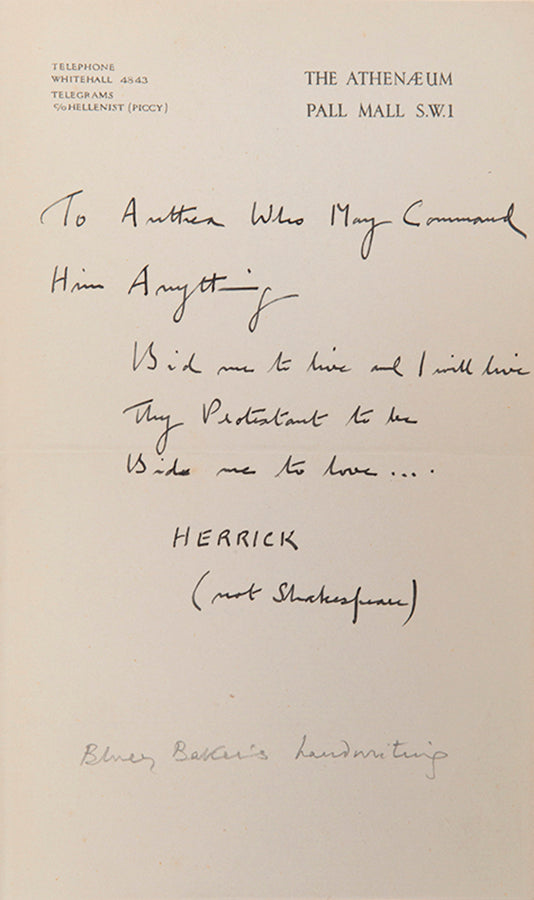 TELEPHONE
WHITEHALL 4843
TELEGRAMS
c/o HELLENIST (PICCY)
THE ATHENÆUM
PALL MALL S.W.1
To Anthea Who May Command
Him Anything
Bid me to live and I will live
Thy Protestant to be
Bid me to love ....
HERRICK
(not Shakespeare)
Baker's handwriting